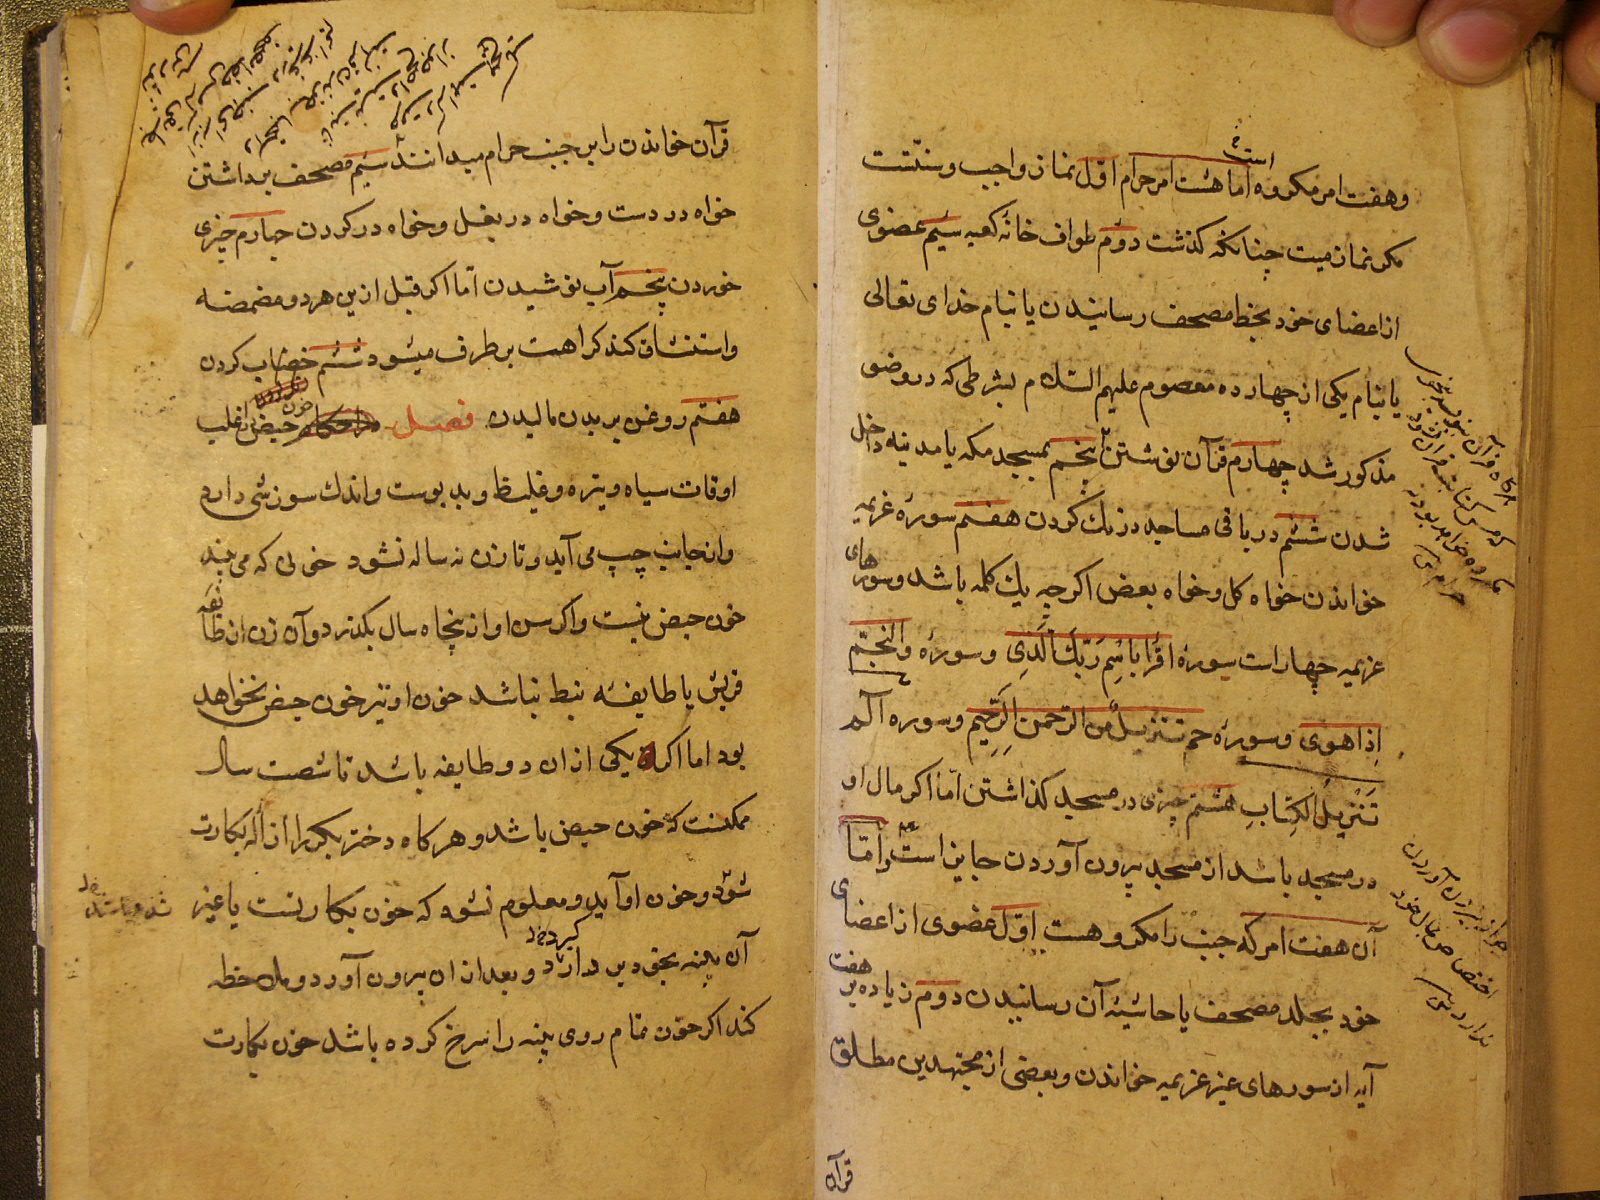 است
وهفت امر مکروه اما هشت امر حرام اوّل نماز واجب و سنّتست
مکر نماز میت چنانکه کذشت دوّم طواف خانهٔ کعبه سیّم عضوی
از اعضای خود بخط مصحف رسانیدن یا بنام خدای تعالی
یا بنام یکی از چهارده معصوم علیهم السّلام بشرطی که در وضو
مذکور شد چهارم قرآن نوشتن پنجم بمسجد مکه یا مدینه داخل
شدن ششم در باقی مساجد درنك کردن هفتم سورهٔ عزیمه
خواندن خواه کل وخواه بعض اکرچه یك کلمه باشد وسورهای
عزیمه چهار است سورهٔ اقْرَأ بِاسْمِ رَبِّكَ الَّذِی وسورهٔ والنَّجْمِ
إذا هوی وسورهٔ حم تنزیلٌ من الرّحمن الرَّحِیمِ وسوره الم
تَنْزِیلُ الکِتابِ هشتم چیزی در مسجد کذاشتن امّا اکر مال او
در مسجد باشد از مسجد بیرون آوردن جایز است وامّا
آن هفت امر که جنب را مکروهست اوّل عضوی از اعضای
خود بجلد مصحف یا حاشیهٔ آن رسانیدن دوم زیاده بر هفت
آیه از سورهای غیر عزیمه خواندن وبعضی از مجتهدین مطلق
قرآن
قرآن خواندن را بر جنب حرام میدانند سیّم مصحف برداشتن
خواه در دست وخواه در بغل وخواه در کردن چهارم چیزی
خوردن پنجم آب نوشیدن امّا اکر قبل از ین هر دو مضمضه
واستنشاق کند کراهت بر طرف میشود ششم خضاب کردن
هفتم روغن بر بدن مالیدن فصل خون حیض در اغلب
اوقات سیاه وتیره وغلیظ وبد بوست واندك سوزشی دارد
واز جانب چپ می آید وتا زن نه ساله نشود خونی که می بیند
خون حیض نیست واکر سن او از پنجاه سال بکذرد وآن زن از طایفهٔ
قریش یا طایفهٔ نبط نباشد خون او نیز خون حیض نخواهد
بود اما اکر یکی از ان دو طایفه باشد تا شصت سال
ممکنست که خون حیض باشد وهرکاه دختر بکر را ازاله بکارت
شود وخون او آید ومعلوم نشود که خون بکارتست یا غیر
آن پنبه بخود بر دارد وبعد از ان بیرون آورد وملاحظه
کند اکر خون تمام روی پنبه را سرخ کرده باشد خون بکارت